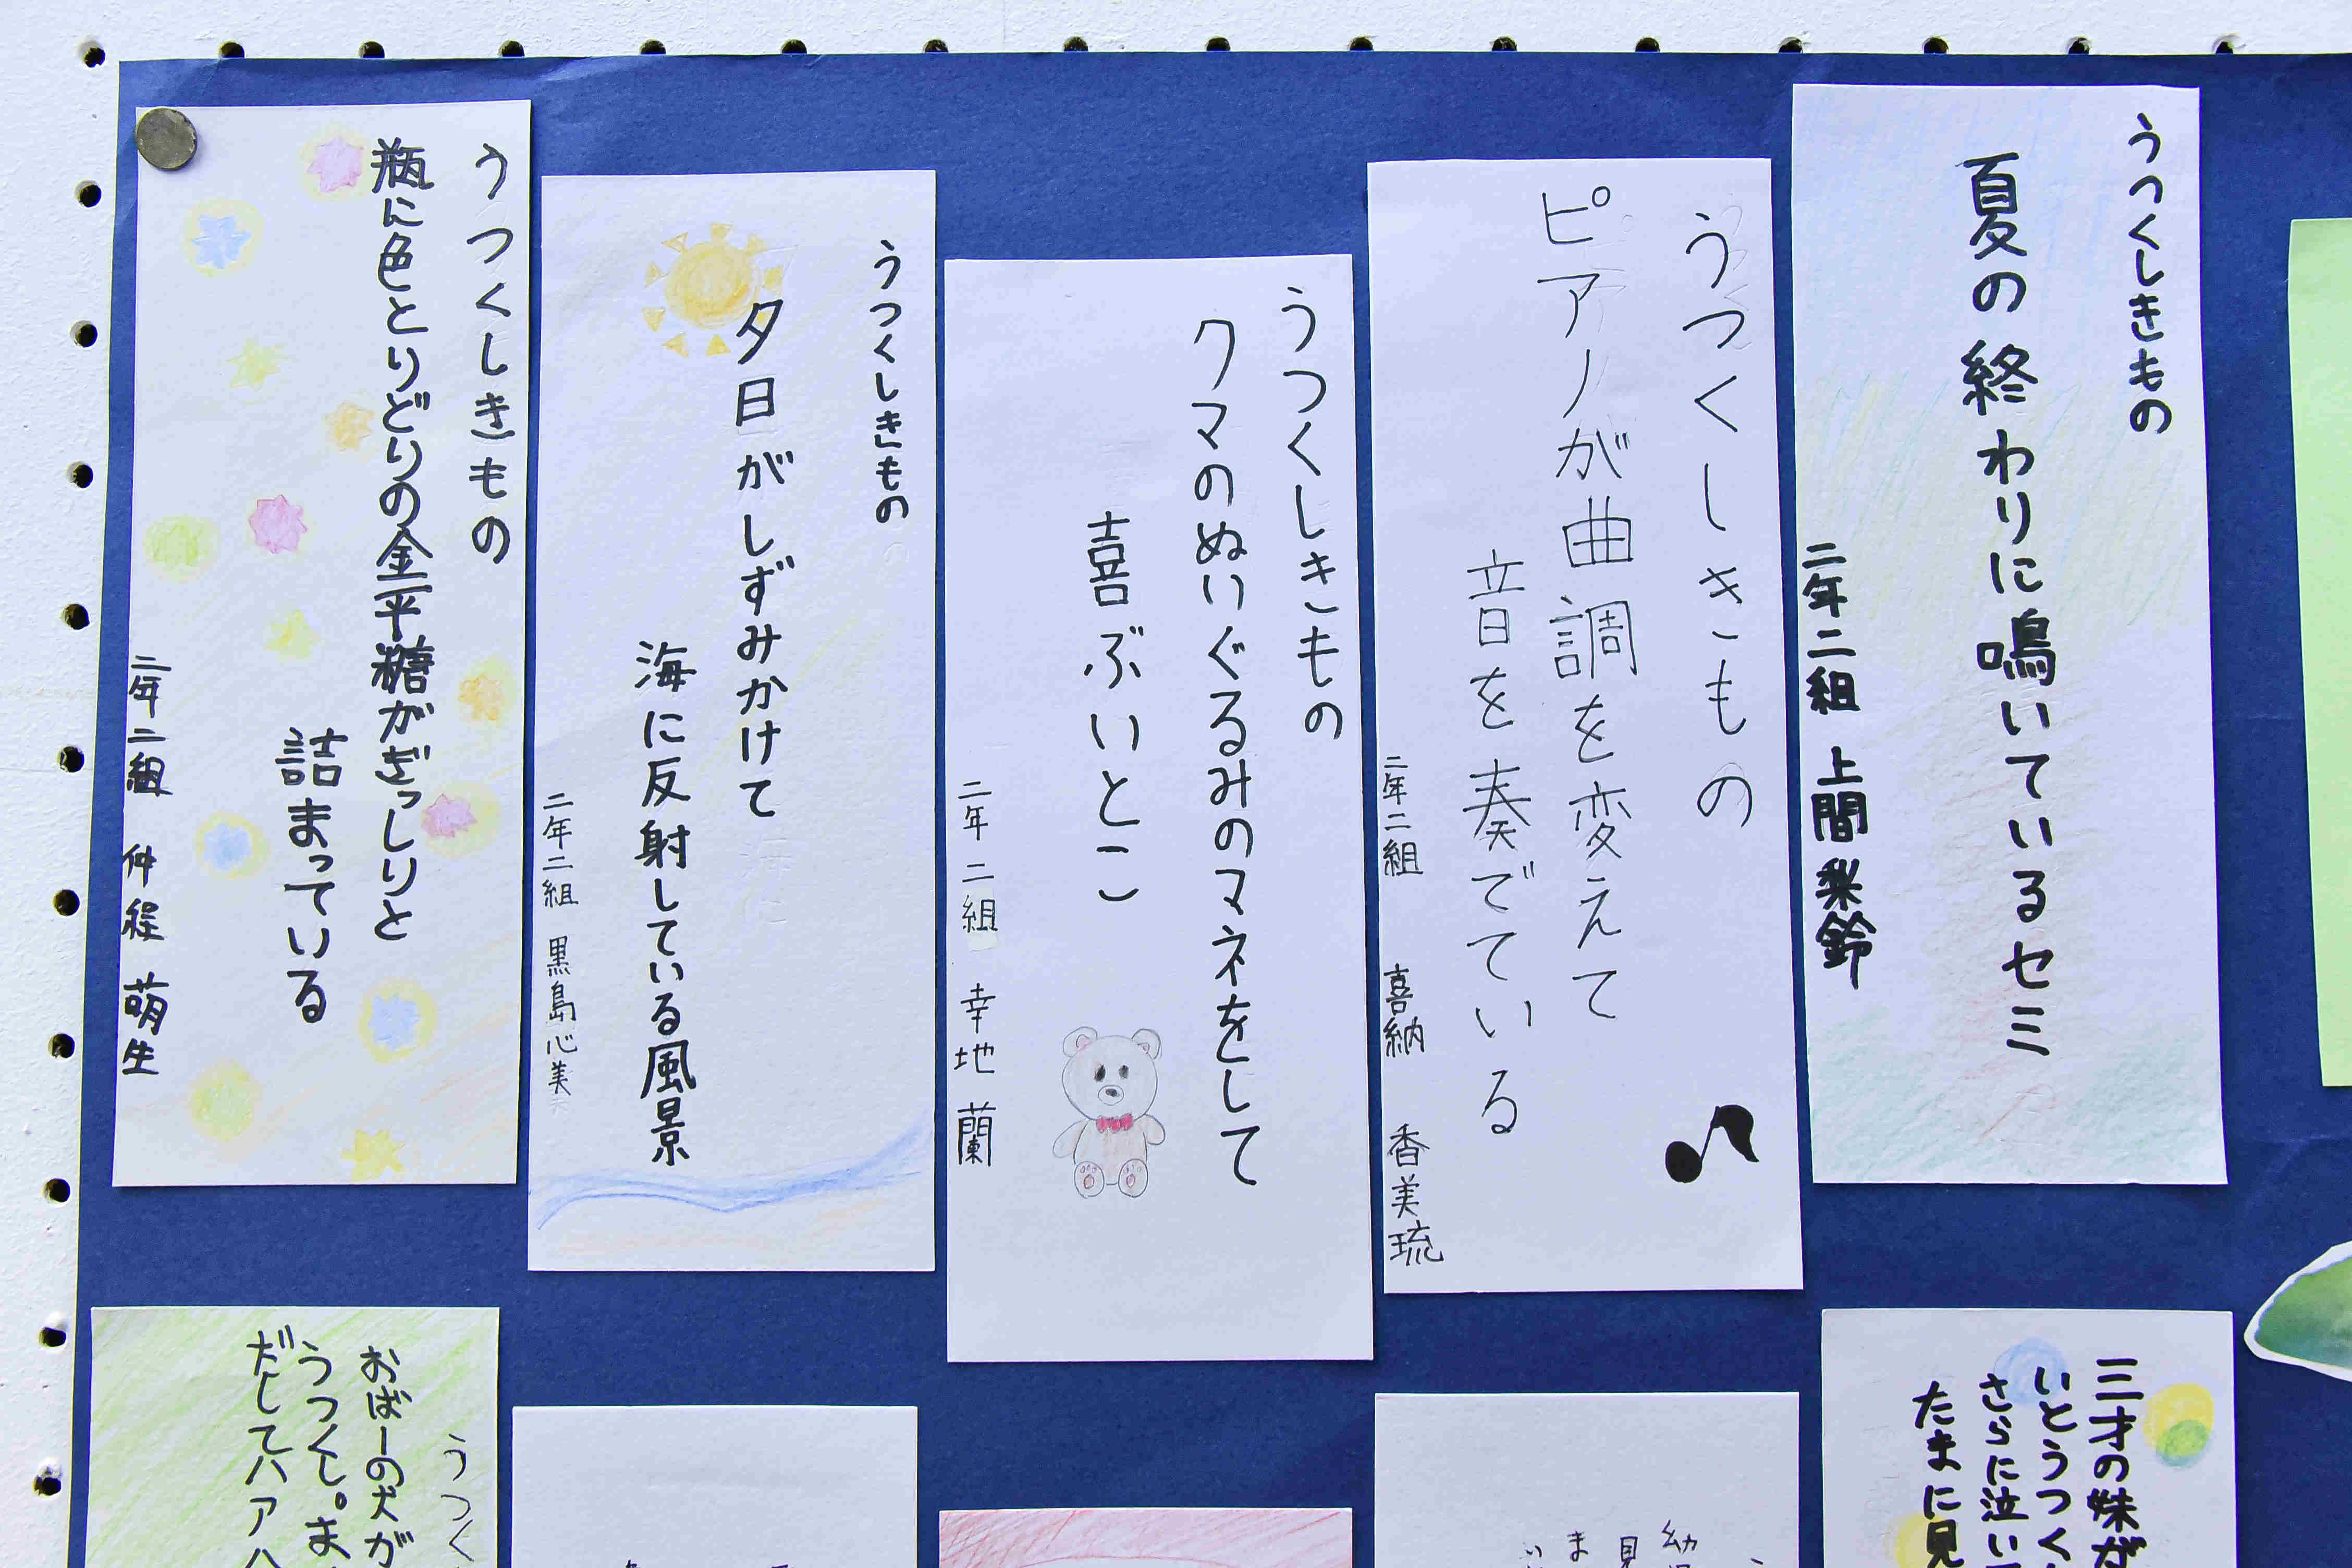 うつくしきもの
夏の終わりに鳴いているセミ
二年二組 上間梨鈴
うつくしきもの
ピアノが曲調を変えて
音を奏でている
二年二組 喜納 香美琉
うつくしきもの
クマのぬいぐるみのマネをして
喜ぶいとこ
二年二組 幸地 蘭
うつくしきもの
夕日がしずみかけて
海に反射している風景
二年二組 黒島心美
うつくしきもの
瓶に色とりどりの金平糖がぎっしりと
詰まっている
二年二組 仲程 萌生
三才の妹が
いとうつく
さらに泣い
たまに見
幼
見
ま
い
うつく
おばーの犬が
うつくし。ま
だしてハアハ